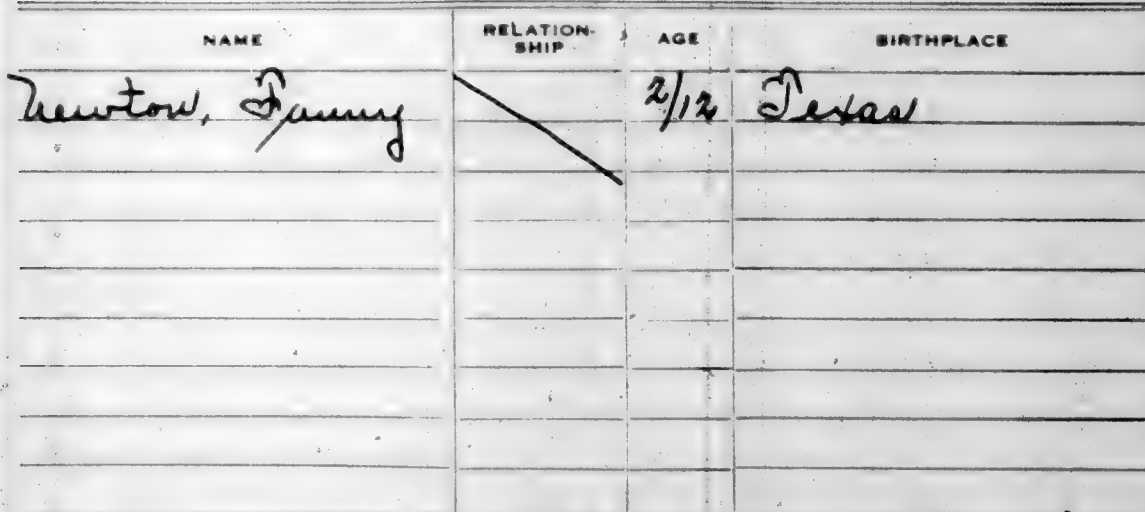 NAME RELATION-SHIP AGE BIRTHPLACE
Newton, Fanny 2/12 Texas